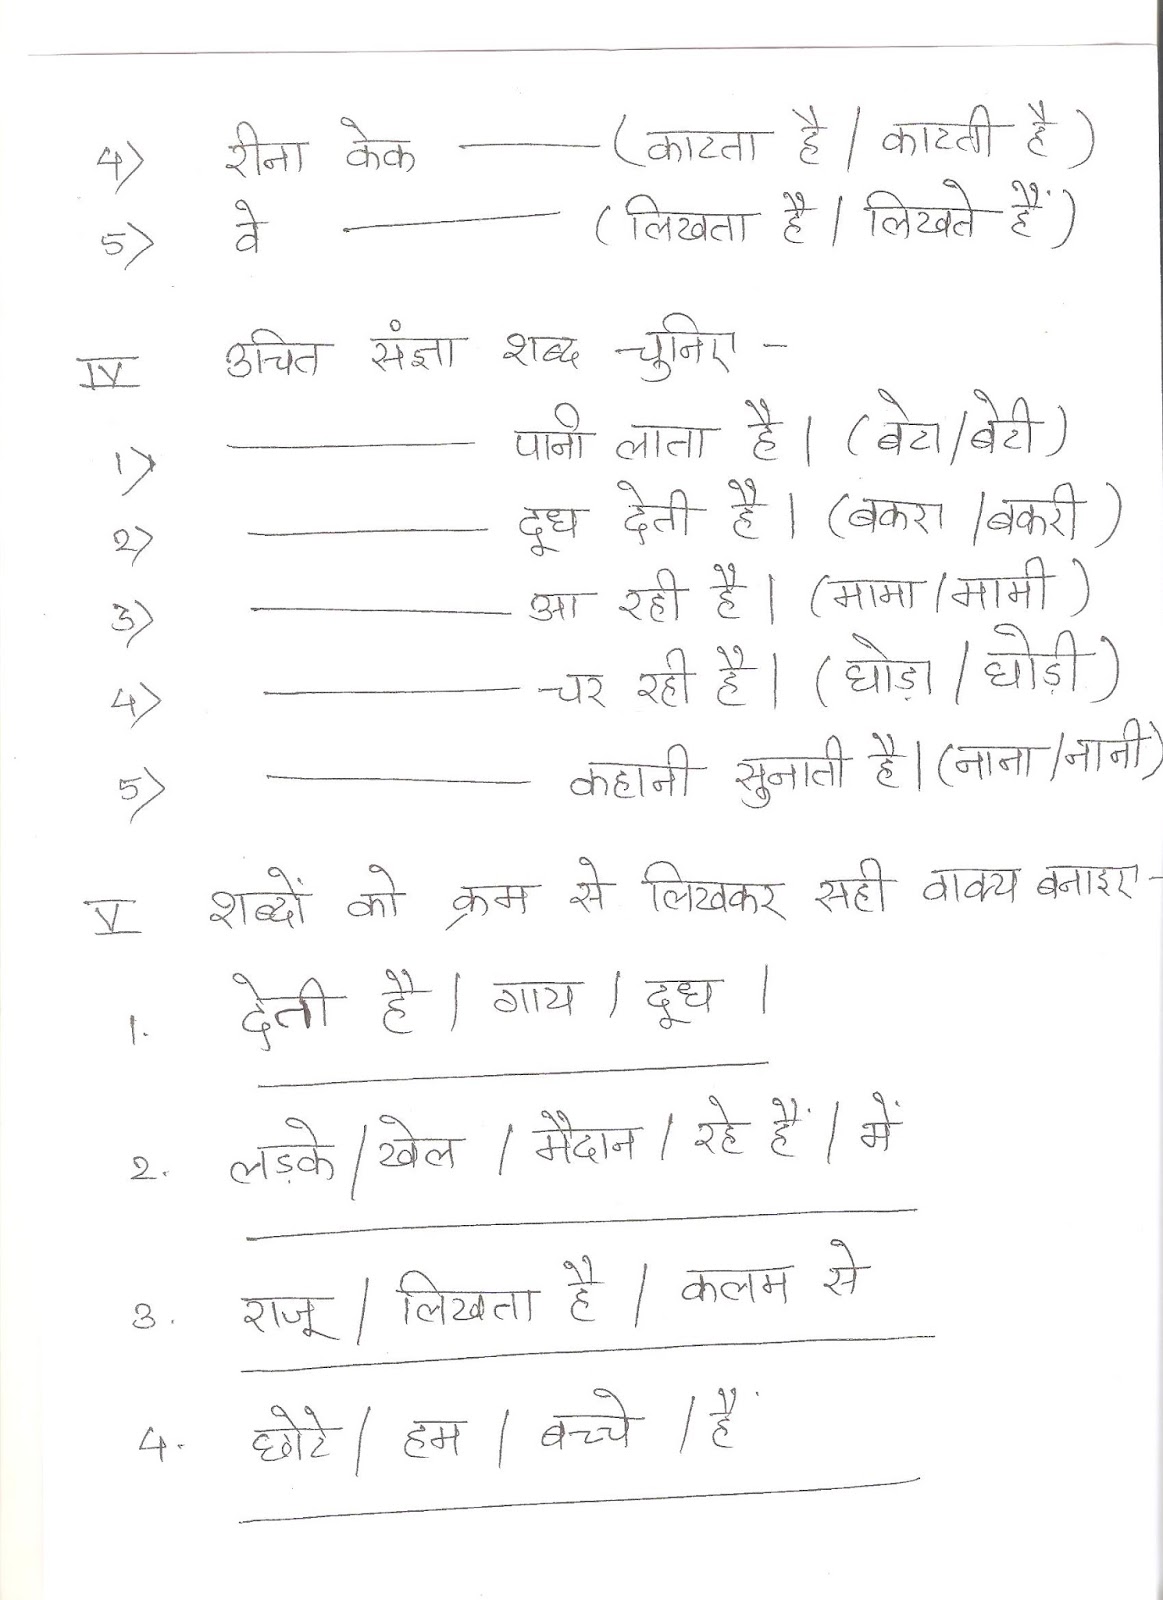 4) रीना केक ——— (काटता है / काटती है)
5) वे ——— (लिखता है / लिखते हैं)
IV उचित संज्ञा शब्द चुनिए -
1) ——— पानी लाता है। (बेटा/बेटी)
2) ——— दूध देती है। (बकरा /बकरी)
3) ——— आ रही है। (मामा/मामी)
4) ——— चर रही है। (घोड़ा / घोड़ी)
5) ——— कहानी सुनाती है। (नाना/नानी)
V शब्दों को क्रम से लिखकर सही वाक्य बनाइए -
1. देती है / गाय / दूध |
2. लड़के / खेल / मैदान / रहे हैं / में
3. राजू / लिखता है / कलम से
4. छोटे / हम / बच्चे / हैं